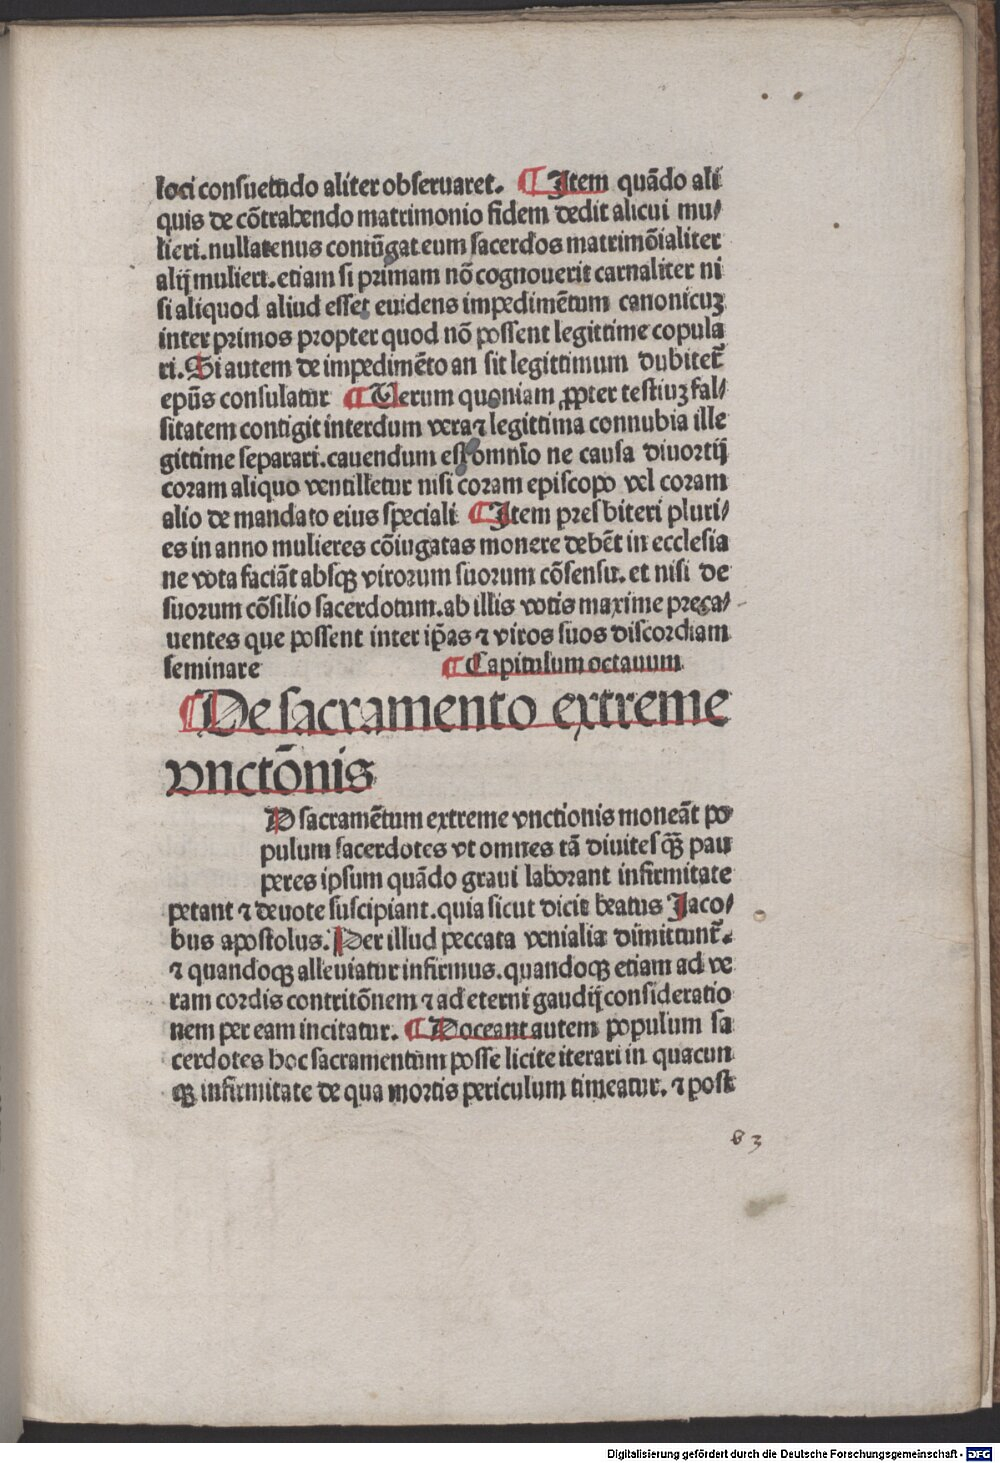 loci consuetudo aliter obseruaret. ¶ Item quādo ali
quis de cōtrahendo matrimonio fidem dedit alicui mu⸗
lieri. nullatenus coniūgat eum sacerdos matrimōialiter
alij mulieri. etiam si primam nō cognouerit carnaliter ni
si aliquod aliud esset euidens impedimētum canonicuꝫ
inter primos propter quod nō possent legittime copula
ri. Si autem de impedimēto an sit legittimum dubitet᷑
ep̄us consulatur ¶ Uerum quoniam ꝓpter testiuꝫ fal⸗
sitatem contigit interdum vera ⁊ legittima connubia ille
gittime separari. cauendum est omnīo ne causa diuortij
coram aliquo ventilletur nisi coram episcopo vel coram
alio de mandato eius speciali ¶ Item presbiteri pluri⸗
es in anno mulieres cōiugatas monere debēt in ecclesia
ne vota faciāt absqꝫ virorum suorum cōsensu. et nisi de
suorum cōsilio sacerdotum. ab illis votis maxime preca⸗
uentes que possent inter ip̄as ⁊ viros suos discordiam
seminare ¶ Capitulum octauum
¶ De sacramento extreme
vnctōnis
D sacramētum extreme vnctionis moneāt po
pulum sacerdotes vt omnes tā diuites qꝫ̄ pau
peres ipsum quādo graui laborant infirmitate
petant ⁊ deuote suscipiant. quia sicut dicit beatus Jaco⸗
bus apostolus. Per illud peccata venialia dimittunt᷑.
⁊ quandoqꝫ alleuiatur infirmus. quandoqꝫ etiam ad ve
ram cordis contritōnem ⁊ ad eterni gaudij consideratio
nem per eam incitatur. ¶ Doceant autem populum sa
cerdotes hoc sacramentum posse licite iterari in quacun
qꝫ infirmitate de qua mortis periculum timeatur. ⁊ post
b 3
Digitalisierung gefördert durch die Deutsche Forschungsgemeinschaft - DFG